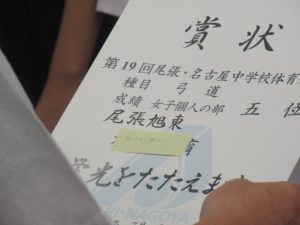 賞状
第19回尾張・名古屋中学校体育
種目 弓道
成績 女子個人の部 五位
尾張旭東
栄光をたたえま
RI-NAGOYA